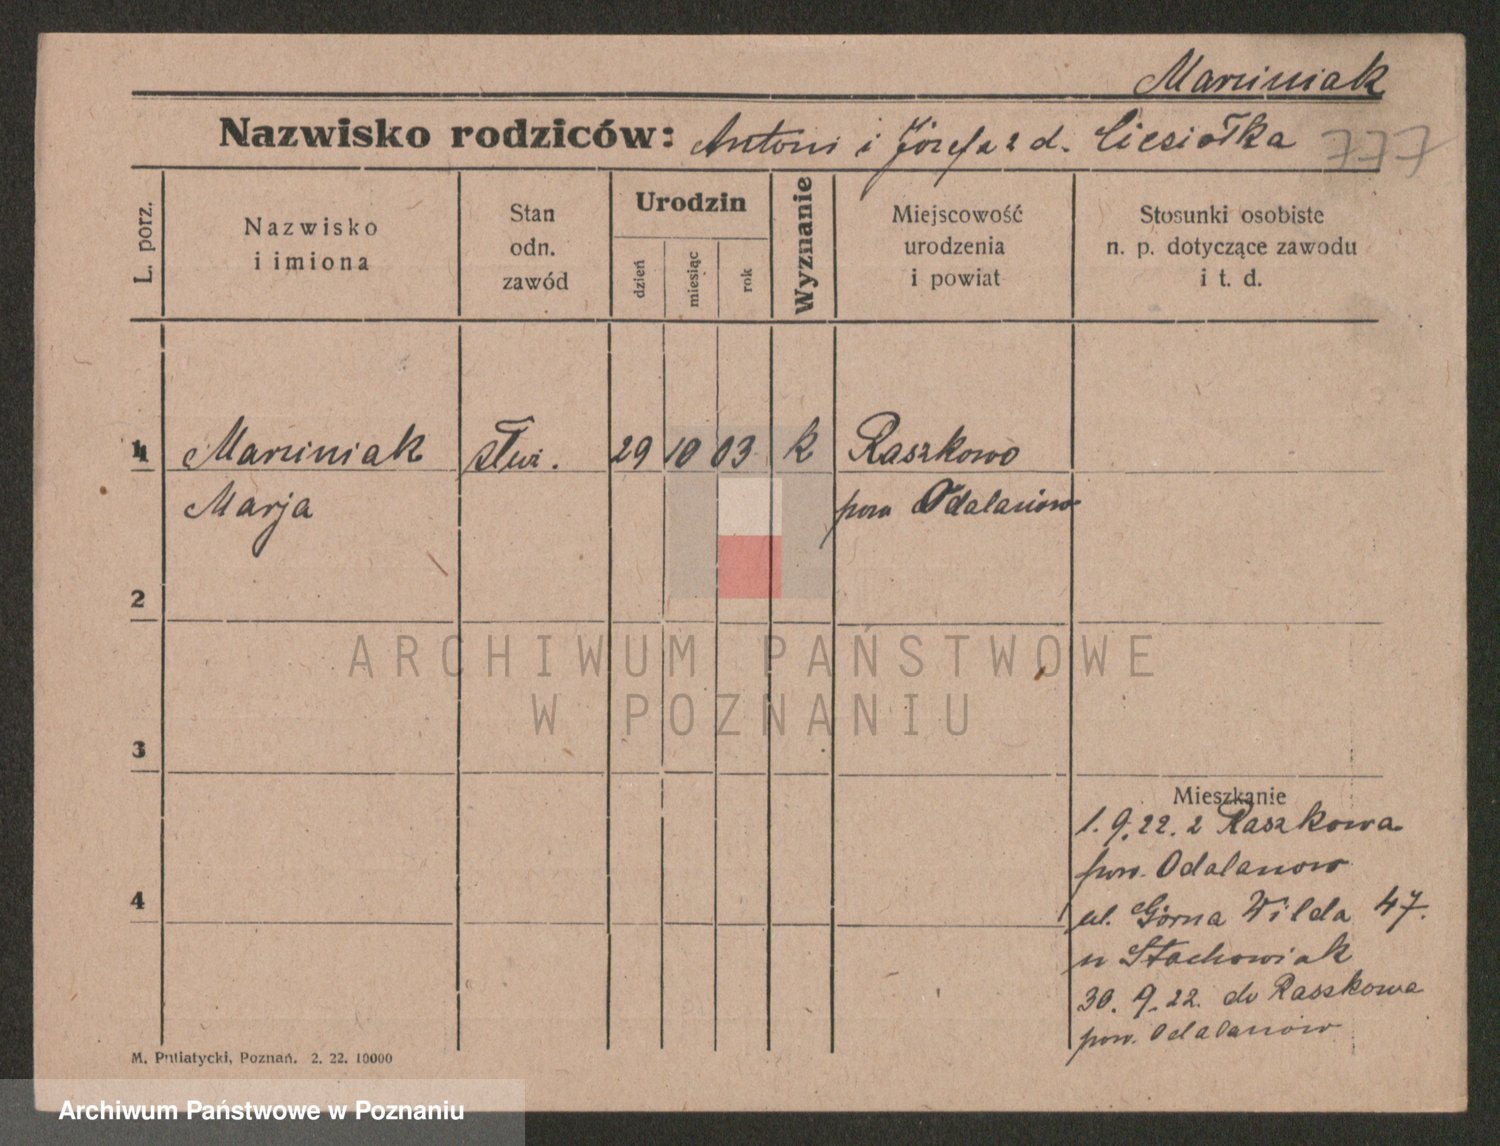 Marciniak
Nazwisko rodziców: Antoni i Józefa z d. Ciesiołka 777
L. porz.
Nazwisko
i imiona
Stan
odn.
zawód
Urodzin
dzień
miesiąc
rok
Wyznanie
Miejscowość
urodzenia
i powiat
Stosunki osobiste
n. p. dotyczące zawodu
i t. d.
1 Marciniak służ. 29 10 03 k Raszkowo
Marja pow Odalanów
2
ARCHIWUM PAŃSTWOWE
W POZNANIU
3
Mieszkanie
1. 9. 22. z Raszkowa
pow. Odalanow
4
ul. Górna Wilda 47.
u Stachowiak
30. 9. 22. do Raszkowa
pow. Odalanów
M. Putiatycki, Poznań. 2. 22. 10000
Archiwum Państwowe w Poznaniu